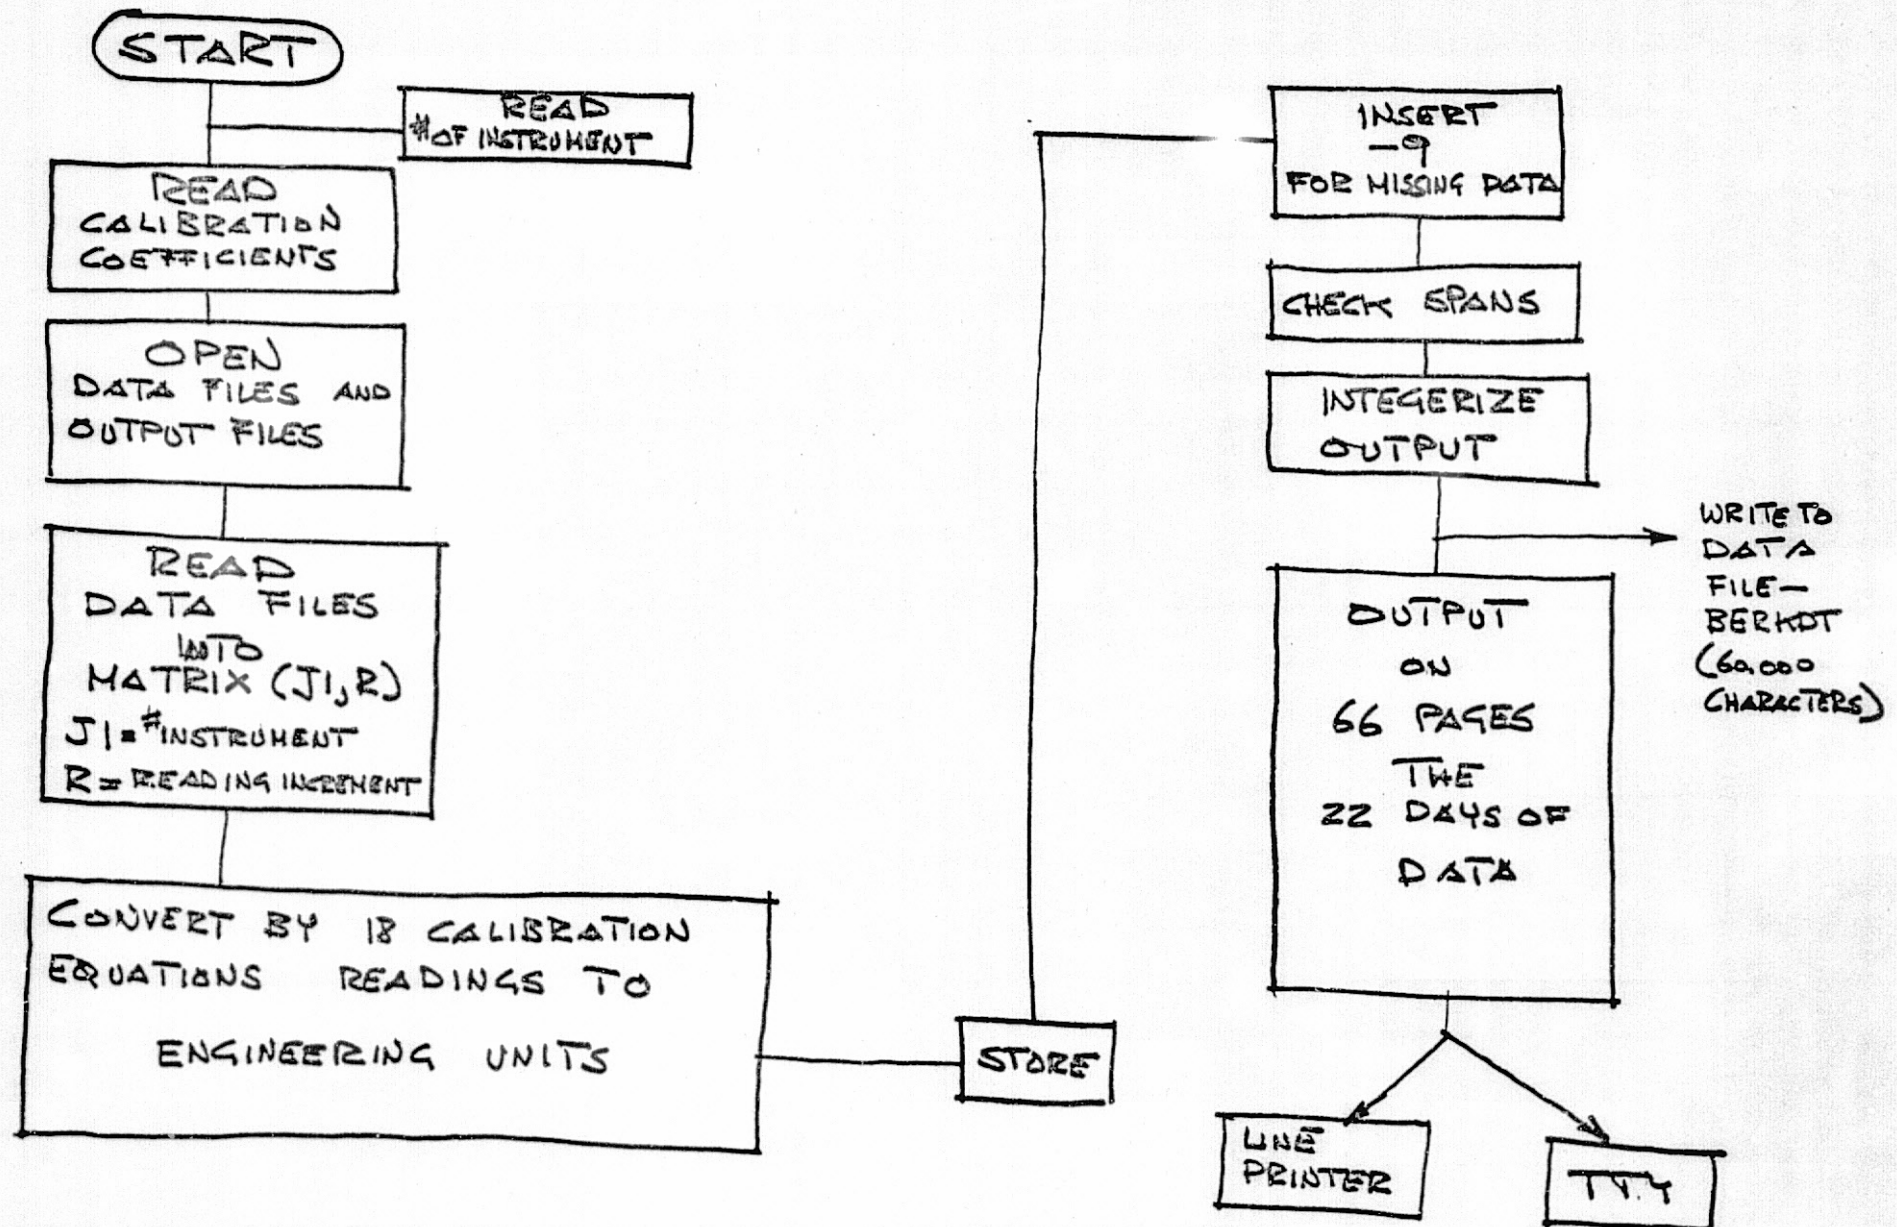 START
READ
# OF INSTRUMENT
READ
CALIBRATION
COEFFICIENTS
OPEN
DATA FILES AND
OUTPUT FILES
READ
DATA FILES
INTO
MATRIX (J1,R)
J1 = # INSTRUMENT
R = READING INCREMENT
CONVERT BY 18 CALIBRATION
EQUATIONS READINGS TO
ENGINEERING UNITS
STORE
INSERT
-9
FOR MISSING DATA
CHECK SPANS
INTEGERIZE
OUTPUT
WRITE TO
DATA
FILE-
BERKDT
(60,000
CHARACTERS)
OUTPUT
ON
66 PAGES
THE
22 DAYS OF
DATA
LINE
PRINTER
TTY